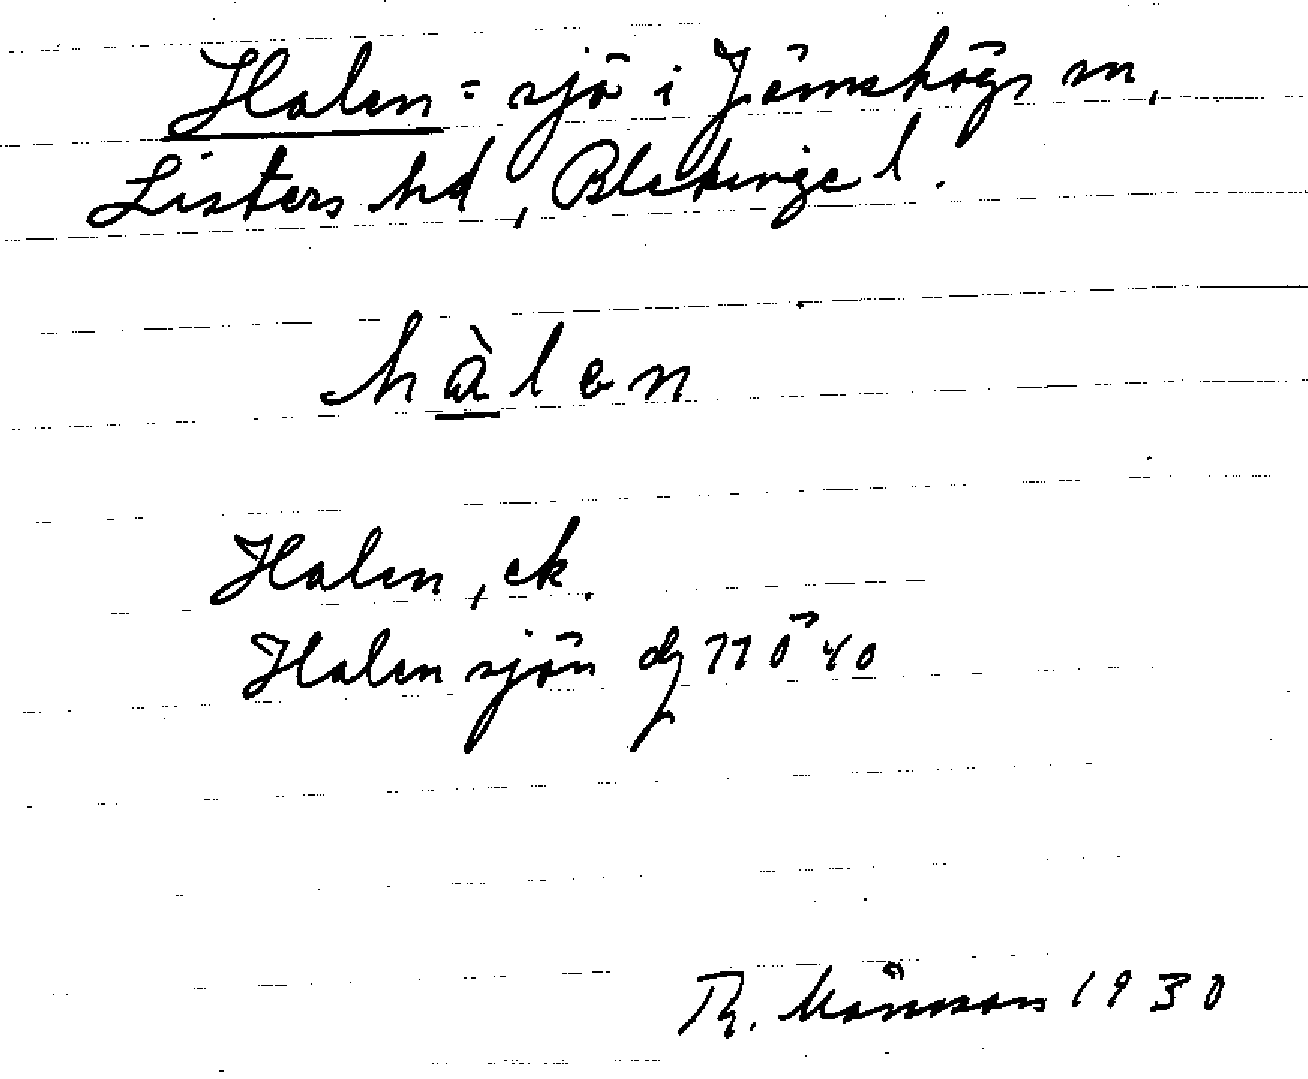 Halen = sjö i Jämshögs sn,
Listers hd, Blekinge l.
hàlen
Halen, ek.
Halen sjön
Månsson 1930